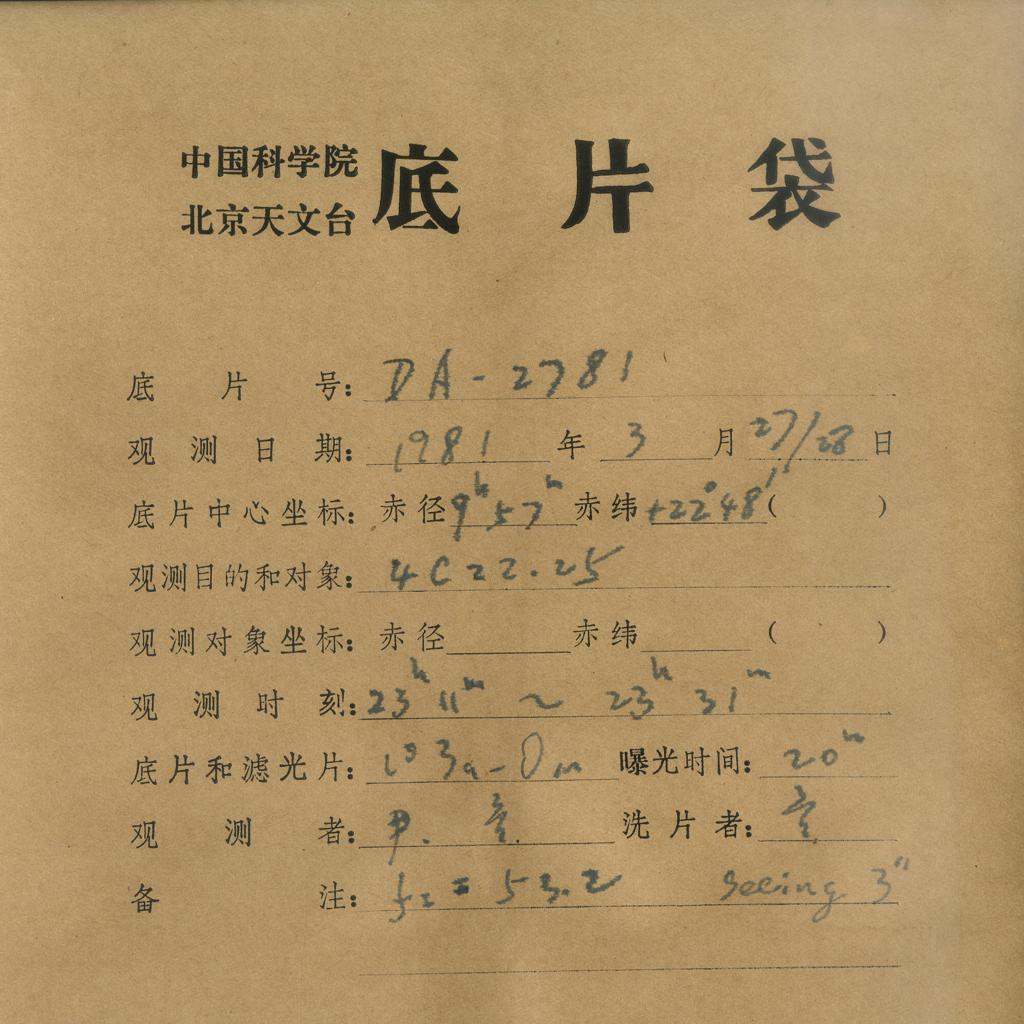 中国科学院
北京天文台
底片袋
底片号: DA-2781
观测日期: 1981年3月27/28日
底片中心坐标: 赤径9h57m赤纬+22°48'( )
观测目的和对象: 4C22.25
观测对象坐标: 赤径 赤纬 ( )
观测时刻: 23h11m ~ 23h31m
底片和滤光片: 103a-O 曝光时间: 20m
观测者: 洗片者:
备注: = 53.2 seeing 3"